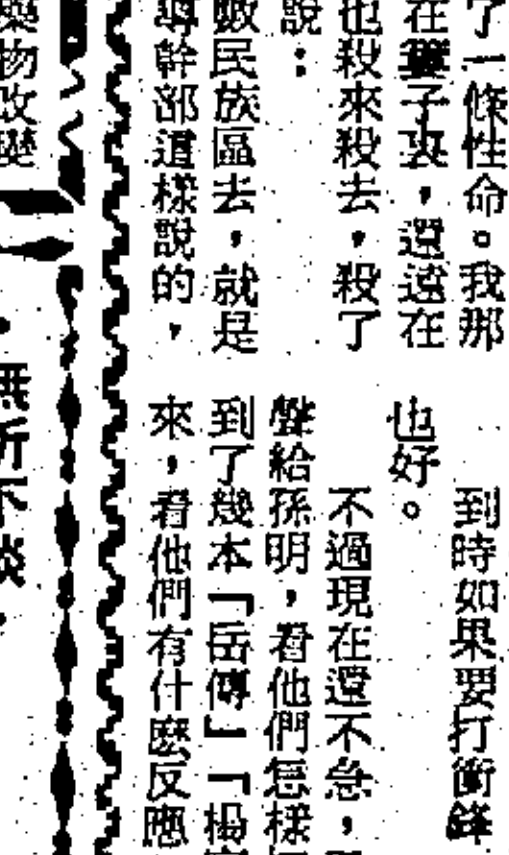 了一條性命。我那
在鼙子裏，還遠在
也殺來殺去，殺了
說：
數民族區去，就是
導幹部這樣說的，
到時如果要打衝鋒
也好。
不過現在還不急，
聲給孫明，看他們怎樣
到了幾本「岳傳」「揚
來，看他們有什麼反應
藥物改變
，無所不談，